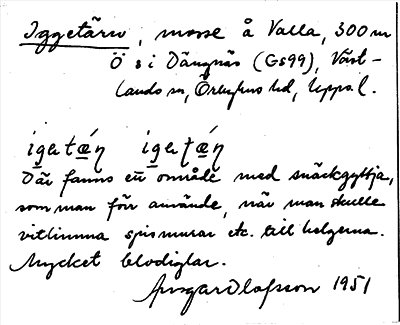 Iggetärn, mosse å Valla, 300 m
Ö s i Dängnäs (GS99), Väst-
lands sn, Örbyhus hd, Upps. l.
igatǽn igatǽn
Där fanns ett område med snäckgyttja,
som man förr använde, när man skulle
vitlimma spismurar etc. till helgerna.
Mycket blodiglar.
Ansgar Olafsson 1951